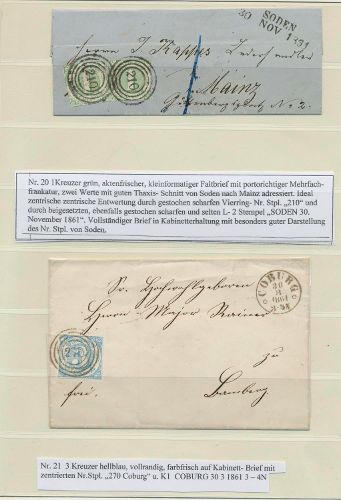 30 SODEN
NOV 1861
Herrn J. Kappus Lederhändler
210 210
Mainz
Nr. 20 1Kreuzer grün, aktenfrischer, kleinformatiger Faltbrief mit portorichtiger Mehrfach-
frankatur, zwei Werte mit guten Thaxis- Schnitt von Soden nach Mainz adressiert. ideal
zentrische zentrische Entwertung durch gestochen scharfen Vierring- Nr. Stpl. „210" und
durch beigesetzten, ebenfalls gestochen scharfen und seiten L- 2 Stempel „SODEN 30.
November 1861“. Vollständiger Brief in Kabinetterhaltung mit besonders guter Darstellung
des Nr. Stpl. von Soden.
COBURG
30
3
1861
3-4N
Sr. Hochwohlgeboren
Herrn Major Rainer
270
zu
frei.
Bamberg
Nr. 21 3 Kreuzer hellblau, vollrandig, farbfrisch auf Kabinett- Brief mit
zentrierten Nr.Stpl. „270 Coburg“ u. K1 COBURG 30 3 1861 3 – 4N